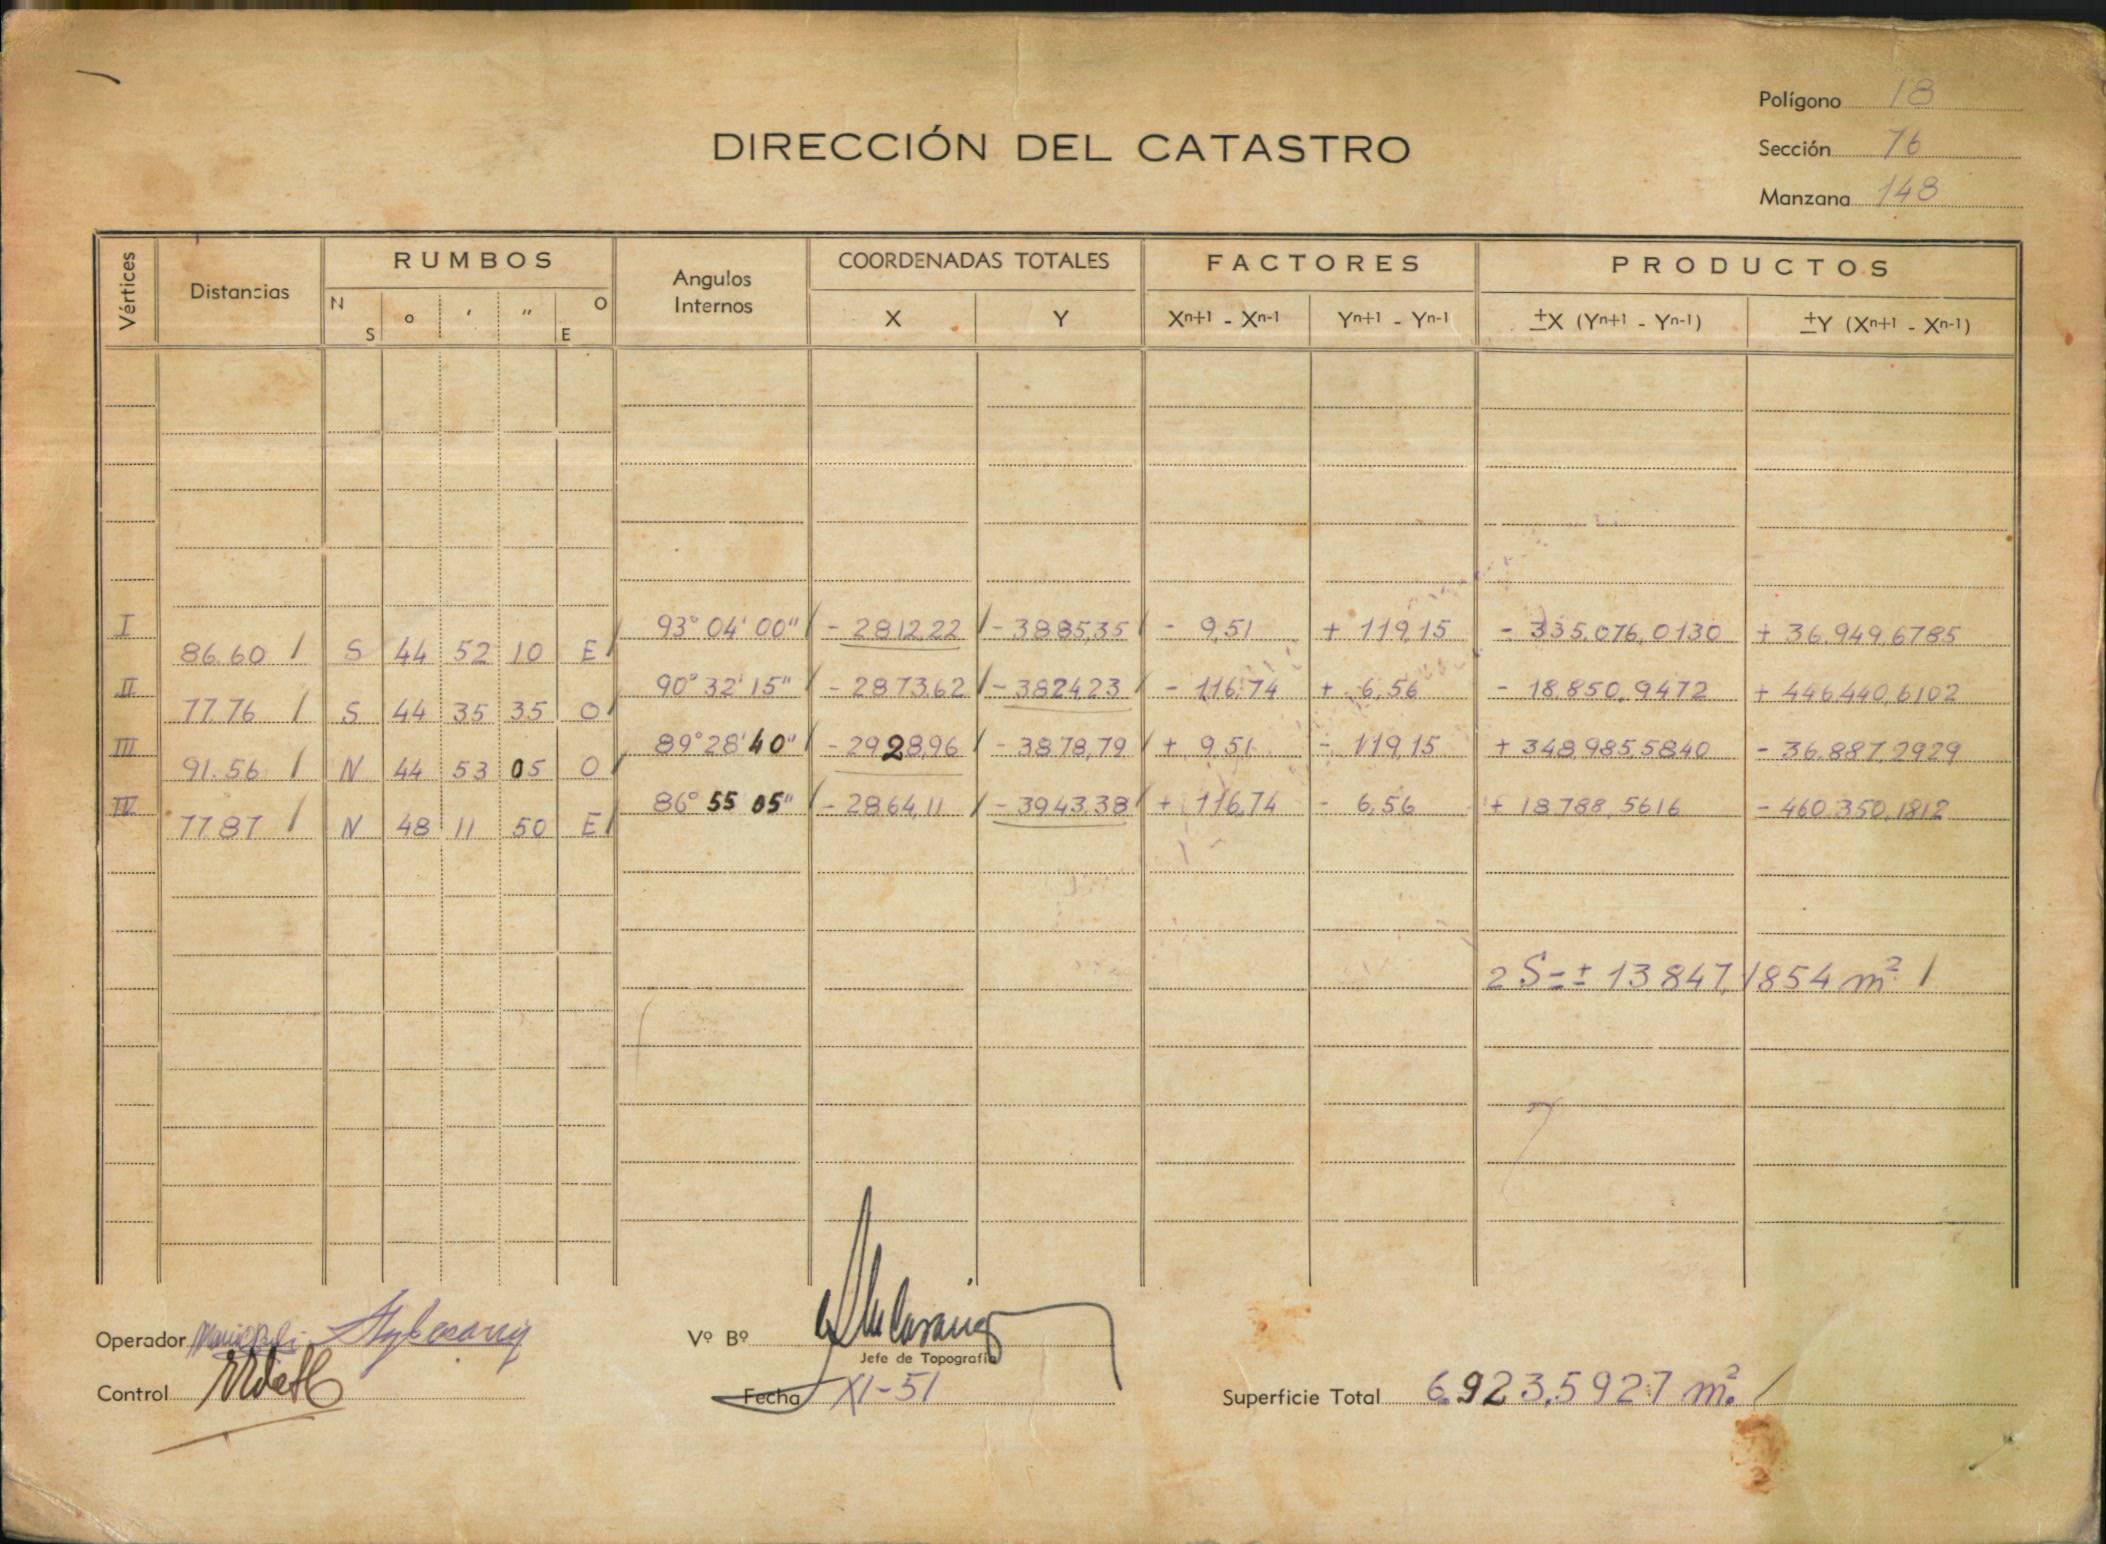 Polígono 18
DIRECCIÓN DEL CATASTRO
Sección 76
Manzana 148
Vértices Distancias RUMBOS Angulos Internos COORDENADAS TOTALES FACTORES PRODUCTOS
N S o ′ ″ O E X Y Xn+1 - Xn-1 Yn+1 - Yn-1 ±X (Yn+1 - Yn-1) ±Y (Xn+1 - Xn-1)
I 93° 04' 00" - 2812,22 - 3885,35 - 9,51 + 119,15 - 335.076,0130 + 36.949,6785
86.60 S 44 52 10 E
II 90° 32' 15" - 2873,62 - 3824,23 - 116,74 + 6,56 - 18.850,9472 + 446.440,6102
77.76 S 44 35 35 O
III 89° 28' 40" - 2928,96 - 3878,79 + 9,51 - 119,15 + 348.985,5840 - 36.887,2929
91.56 N 44 53 05 O
IV 86° 55 05" - 2864,11 - 3943,38 + 116,74 - 6,56 + 18.788,5616 - 460.350,1812
77.87 N 48 11 50 E
2 S = ± 13.847,1854 m²
Operador
Vº Bº
Jefe de Topografía
Control
Fecha XI-51
Superficie Total 6.923,5927 m².